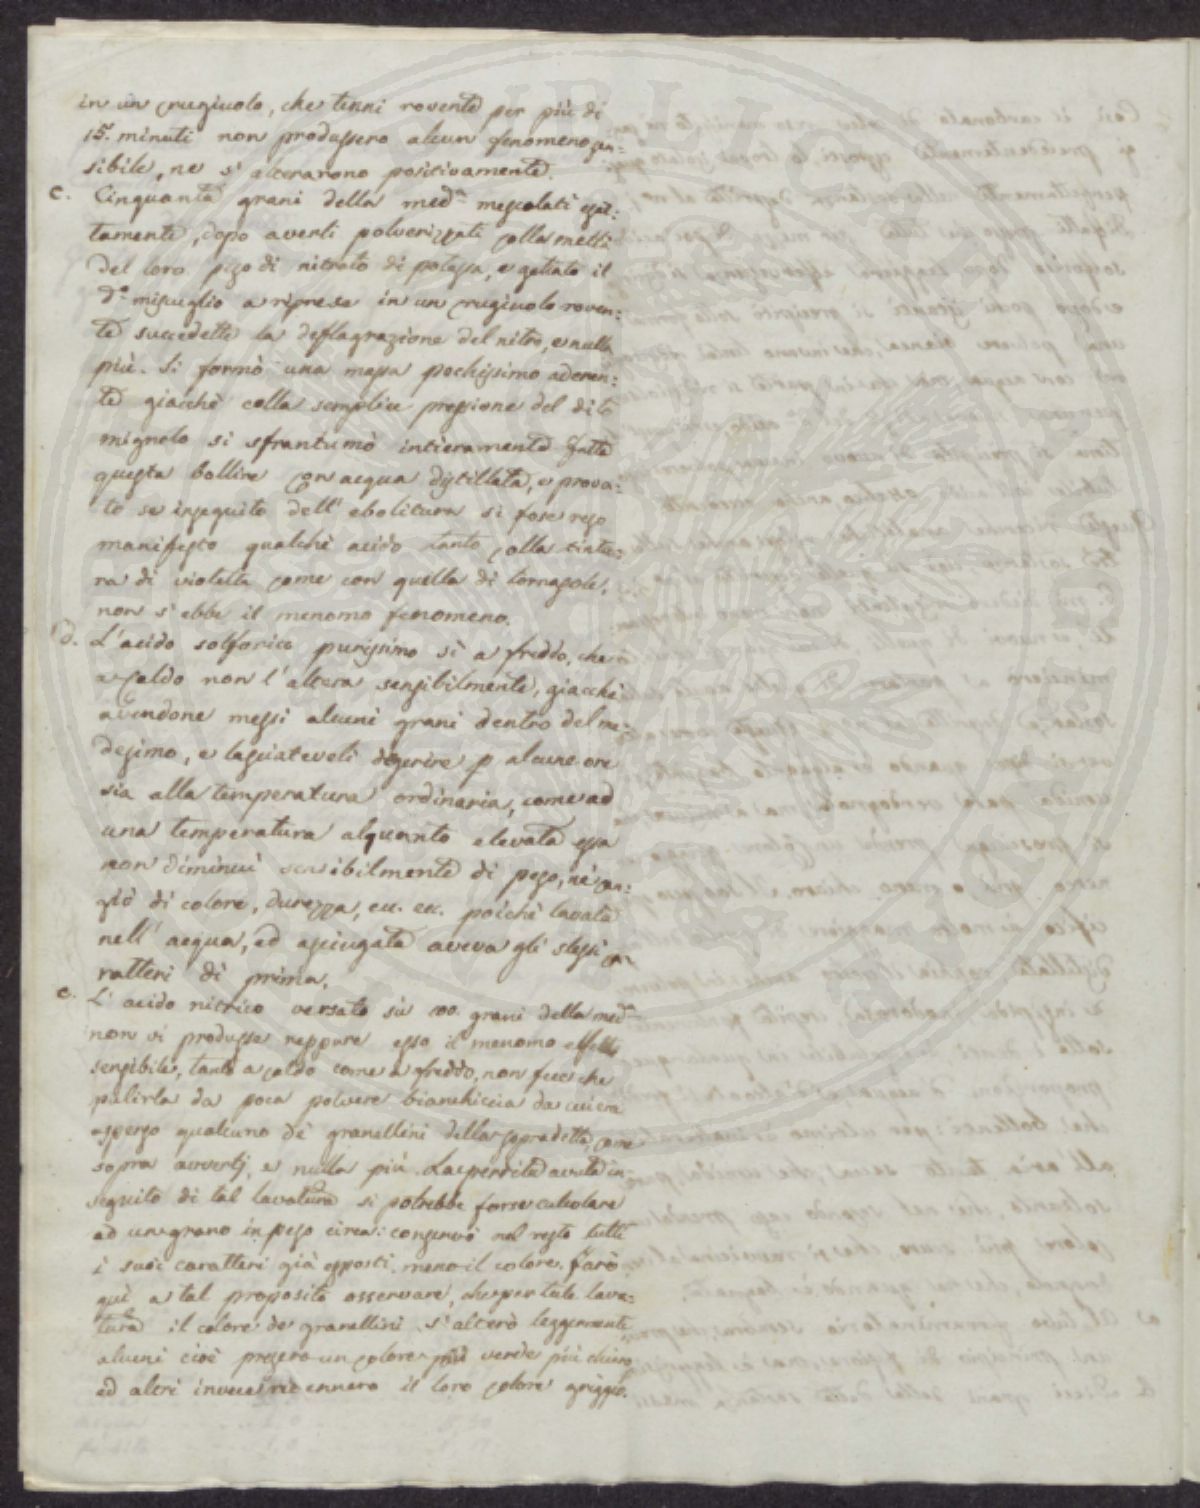 in un crugiuolo, che tenni rovente per più di
15. minuti non produssero alcun fenomeno sen=
sibile, ne s' alterarono positivamente.
c. Cinquanta grani della med.a mescolati esat=
tamente, dopo averli polverizzati colla metti
del loro peso di nitrato di potassa, e gettato il
d.o miscuglio a riprese in un crugiuolo roven=
te succedette la deflagrazione del nitro, e nulla
più. Si formò una massa pochissimo aderen=
te giacchè colla semplice pressione del dito
mignolo si sfrantumò intieramente. Fatta
questa bollire con acqua distillata, e prova=
to se inseguito dell' ebolitura si fose reso
manifesto qualche acido tanto colla tintu=
ra di violette come con quella di tornasole,
non s' ebbe il menomo fenomeno.
d. L'acido solforico purissimo sì a freddo, che
a caldo non l' altera sensibilmente, giacchè
avendone messi alcuni grani dentro del me=
desimo, e lasciatevoli digerire p alcune ore
sia alla temperatura ordinaria, come ad
una temperatura alquanto elevata essa
non diminuì sensibilmente di peso, nè can=
giò di colore, durezza, ecc. ecc. poichè lavata
nell' acqua, ed asciugata aveva gli stessi ca=
ratteri di prima.
e. L' acido nitrico versato sù 100. grani della med.a
non vi produsse neppure esso il menomo effetto
sensibile, tanto a caldo come a freddo, non fece che
pulirla da poca polvere bianchiccia da cui era
asperso qualcuno de' granellini della sopradetta, come
sopra avvertj, e nulla più. La perdita avuta in=
seguito di tal lavatura si potrebbe forse calcolare
ad un grano in peso circa: conservò nel resto tutti
i suoi caratteri già esposti, meno il colore. Farò
quì a tal proposito osservare, che per tale lava=
tura il colore de' granellini s' alterò leggermente,
alcuni cioè presero un colore più verde più chiaro
ed altri invece ritennero il loro colore griggio.